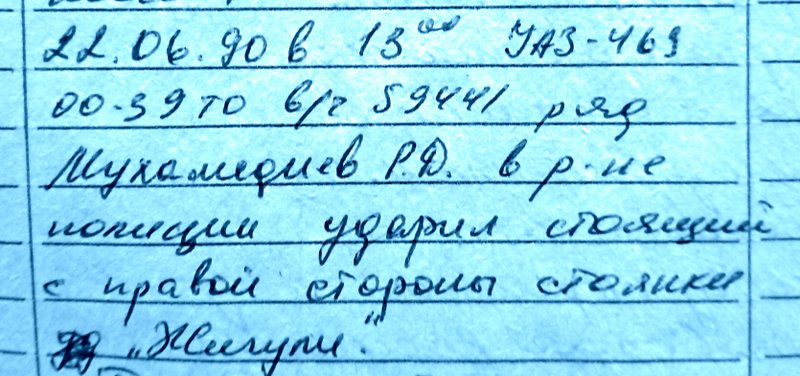 22.06.90 в 13⁰⁰ УАЗ-469
00-39 ТО в/ч 59441 ряд
Мухамедиев Р.Д. в р-не
полиции ударил стоящий
с правой стороны стоянки
„Жигули."